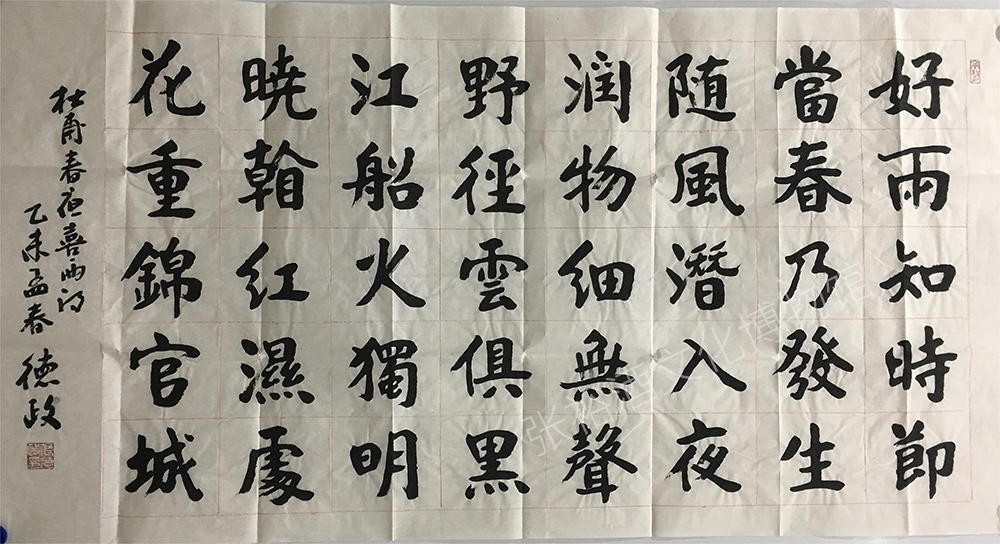 好雨知時節
當春乃發生
随風潛入夜
潤物細無聲
野徑雲俱黑
江船火獨明
曉看紅濕處
花重錦官城
杜甫春夜喜雨詩
乙未孟春 德政